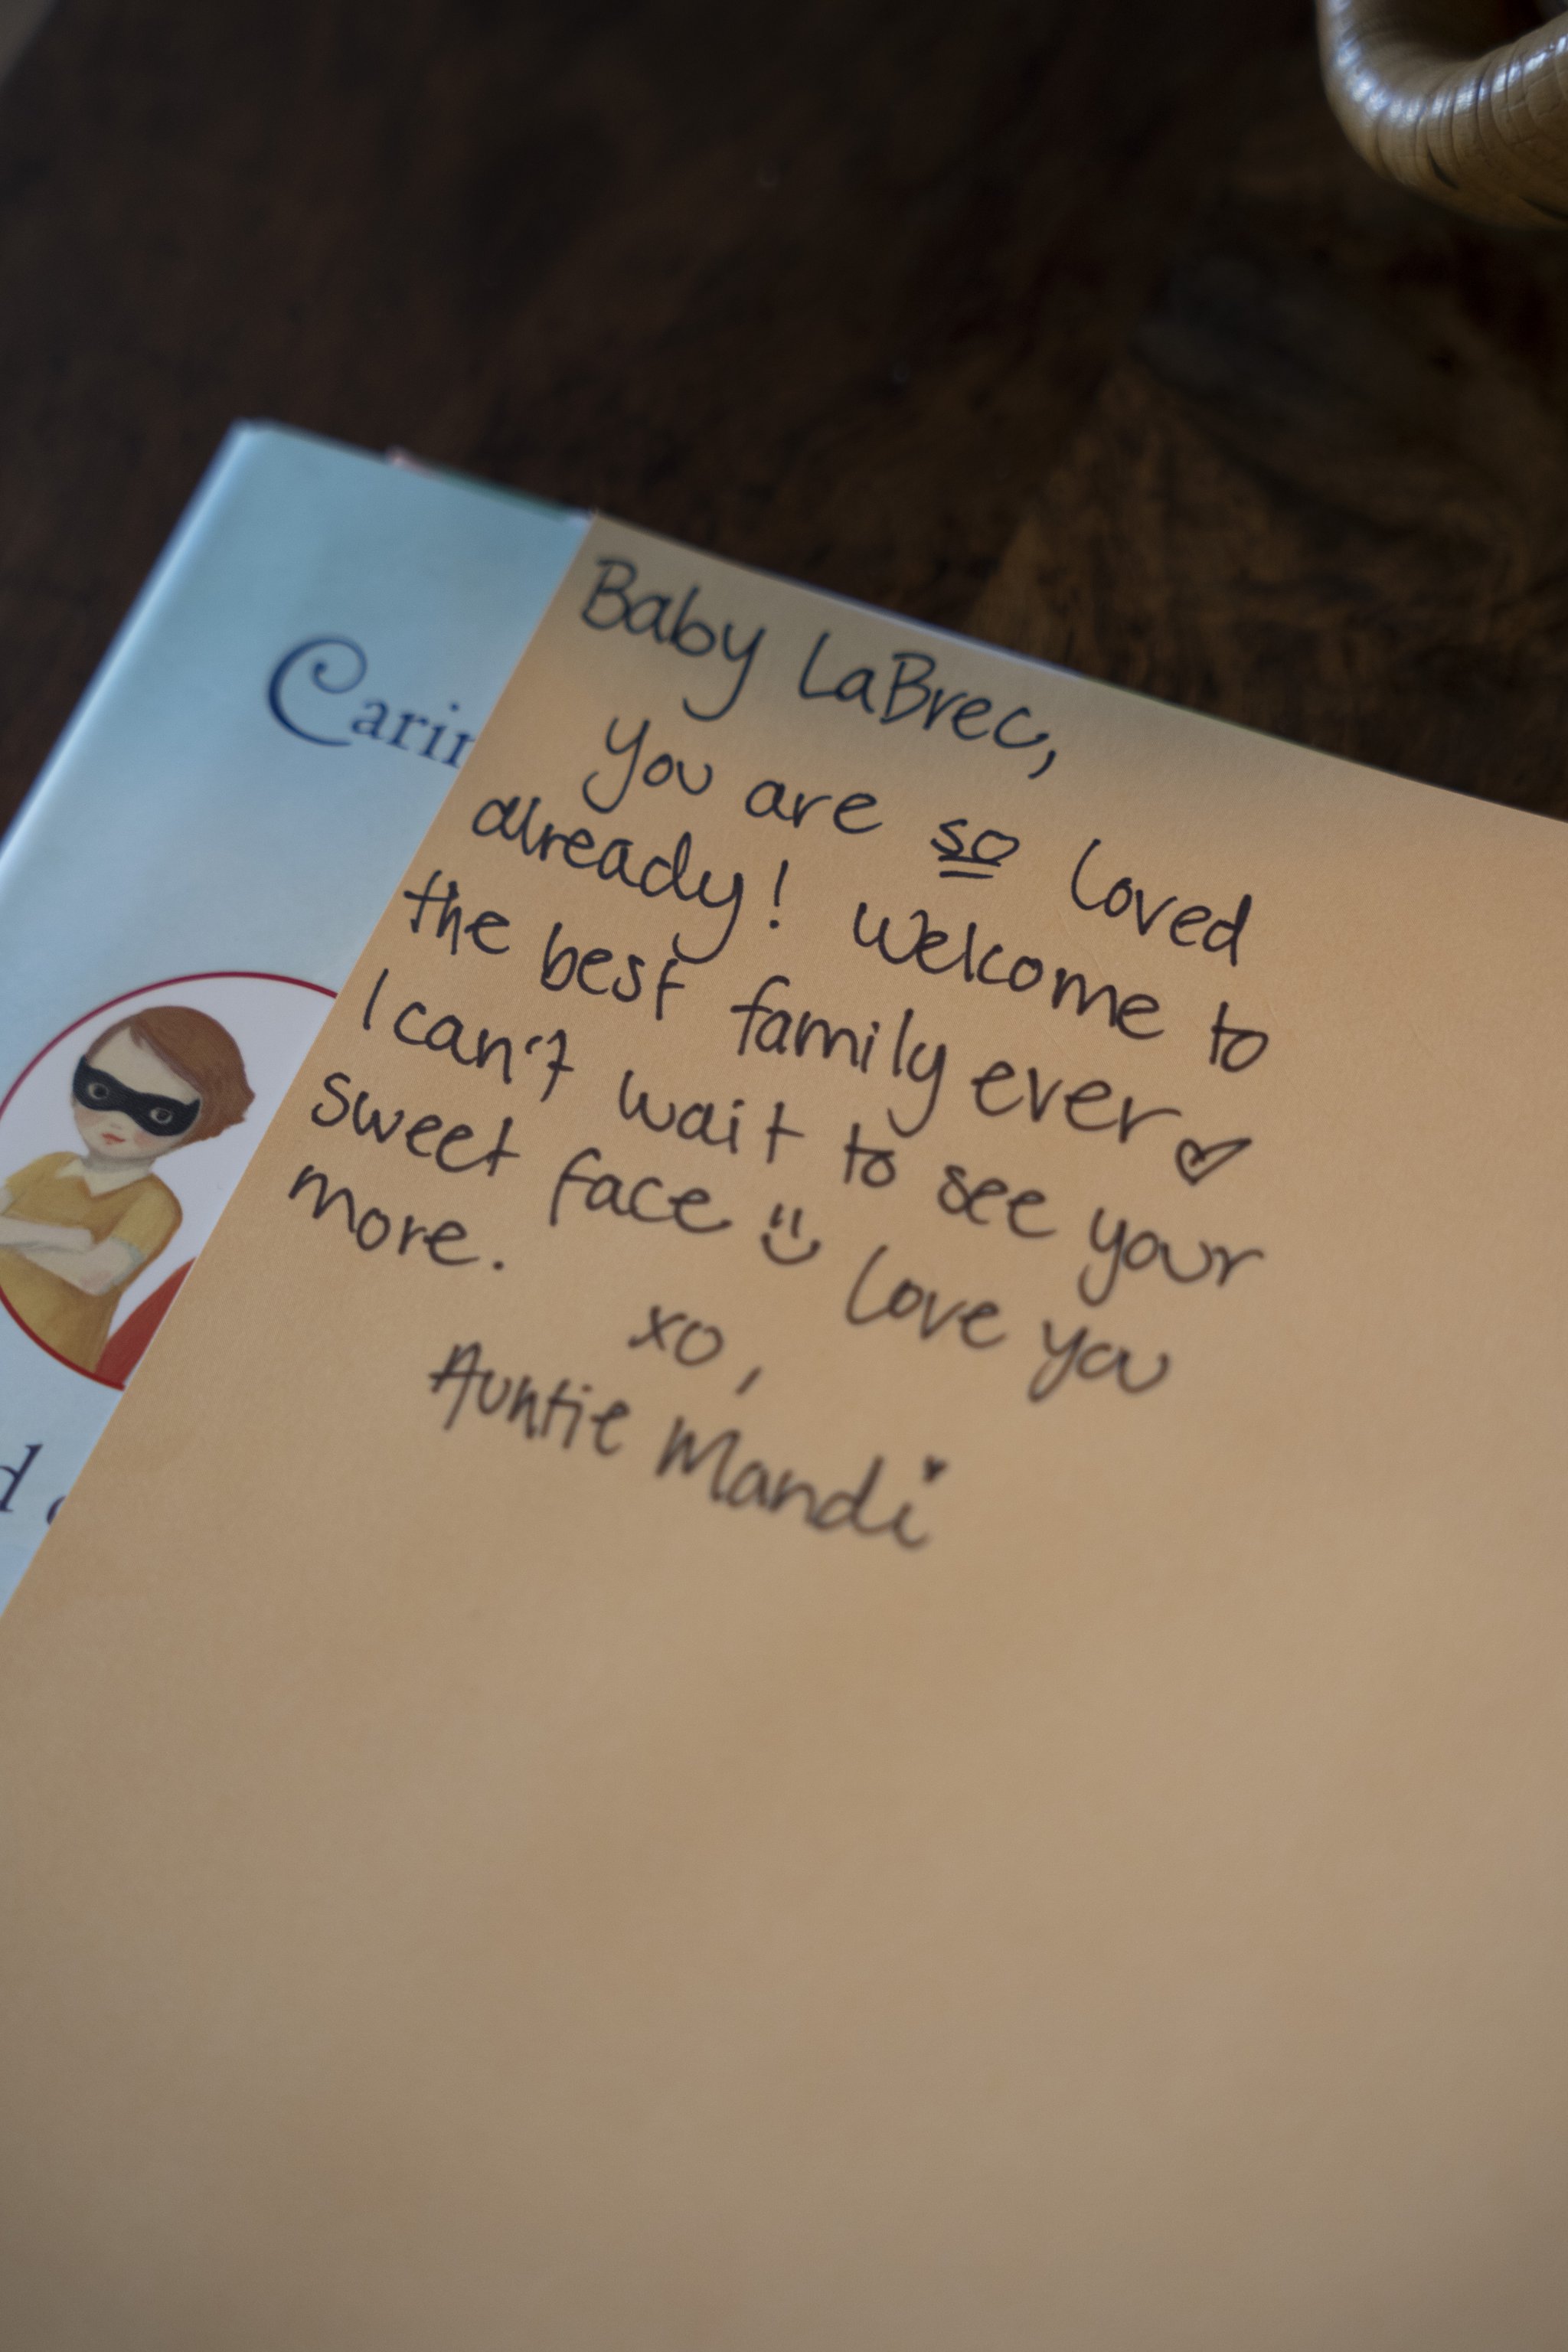 Baby LaBrec,
you are so loved
already! Welcome to
the best family ever ♡
I can't wait to see your
sweet face :) Love you
more.
xo,
Auntie Mandi
Carin
d